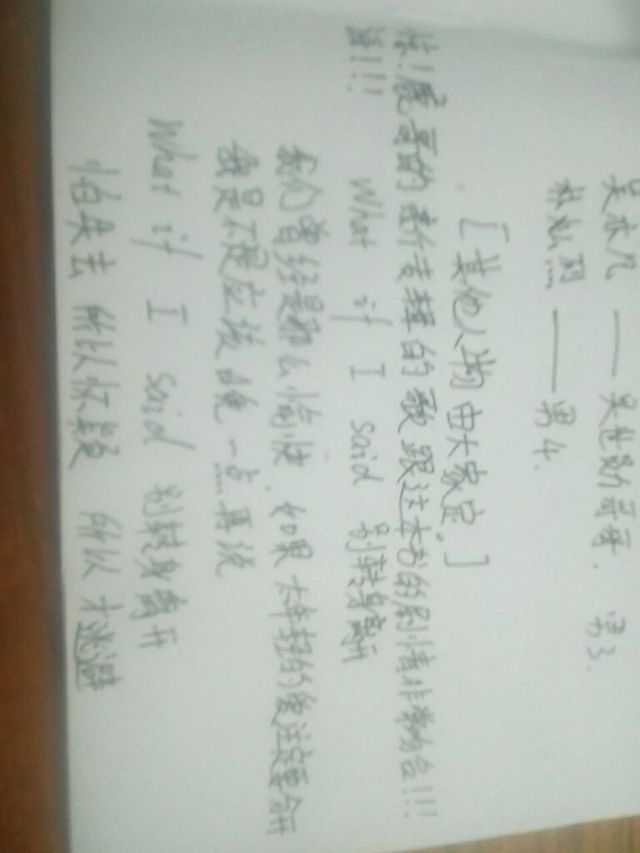 吴亦凡 —— 吴世勋哥哥. 男3.
—— 男4.
[其他人物由大家定。]
惊!!鹿哥的新专辑的歌跟这本书的剧情非常吻合!!!
!!!
What if I said 别转身离开
我们曾经是那么愉快 如果太年轻的爱注定要分开
我是不是应该晚一点再说
What if I said 别转身离开
怕失去 所以怀疑 所以才逃避